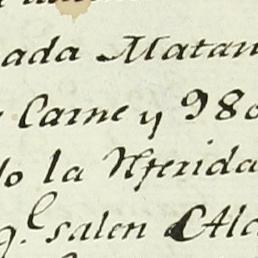 ada Matan
Carne y 980
lo la Rferida
q.e salen Alc